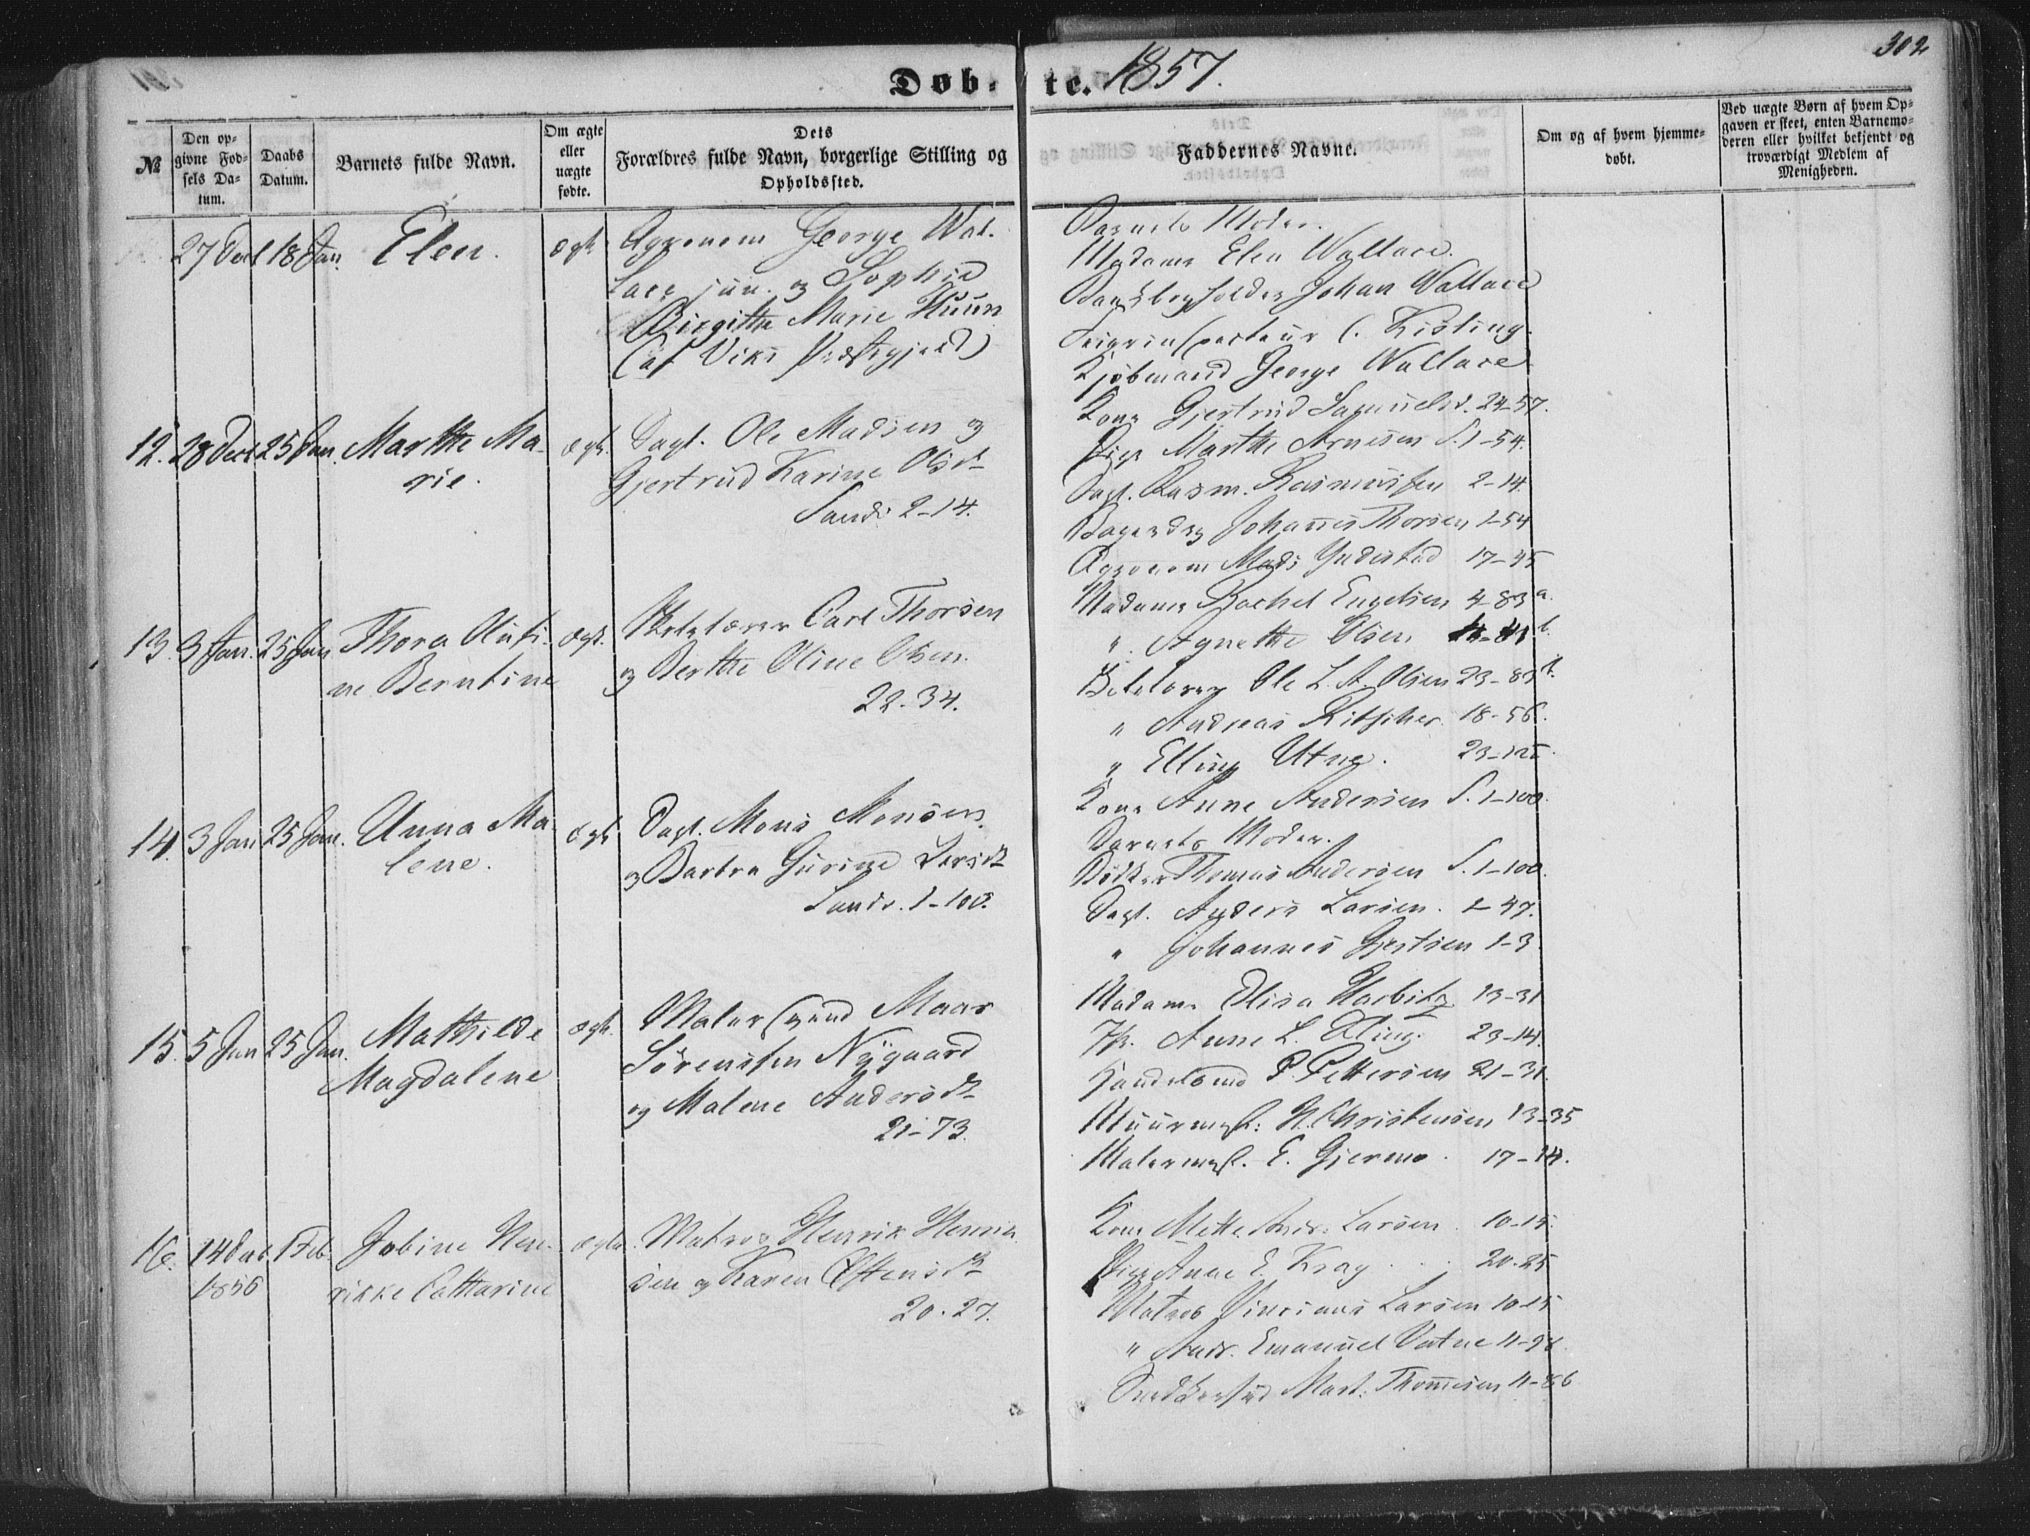 Døbte. 1857.
302
№
Den opgivne Fødsels Datum.
Daabs Datum.
Barnets fulde Navn.
Om ægte eller uægte fødte.
Dets Forældres fulde Navn, borgerlige Stilling og Opholdssted.
Faddernes Navne.
Om og af hvem hjemmedøbt.
Ved uægte Børn af hvem Opgaven er skeet, enten Barnemoderen eller hvilket bekjendt og troværdigt Medlem af Menigheden.
27 Decb 18 Jan. Elen. ægte Agronom George Wallace jun. og Sophie
Birgitte Marie Kuun
(af Viks Præstegjeld)
Barnets Moder.
Madame Elen Wallace.
Johan Wallace
C. Kisling
Kjøbmand George Wallace
12. 28 Decb 25 Jan. Marthe Marie. ægte Dagl. Ole Madsen og
Gjertrud Karine Olsdtr
Sandv 2-14.
Kone Gjertrud Samuelsd. 24-57.
Pige Marthe Arnesen S. 1-54.
Dagl. Rasm. Rasmussen 2-14.
Johannes Thorsen 1-54
Agronom Mads 17-45
13. 3 Jan. 25 Jan Thora Oluffine Berntine ægte Carl Thorsen
og Berthe Oline Olsen.
22-34.
Madame Rachel Engelsen 4-83 a.
" Agnethe Olsen b.
Ole L. A. Olsen 23-83 b.
" Andreas Kitscher 18-56.
" Elling Utne. 23-125.
14. 3 Jan 25 Jan. Anna Malene. ægte Dagl. Mons Monsen
og Barbra Gurine Larsdtr
Sandv. 1-100.
Kone Anne Andersen S. 1-100.
Barnets Moder.
Bødker Thomas Andersen S. 1-100.
Dagl. Anders Larsen. 1-47.
" Johannes Gjertsen 1-3
15. 5 Jan 25 Jan. Mathilde
Magdalene ægte Malersvend Maar
Sørenssen Nygaard
og Malene Andersdtr
21-73.
Madame Elisa Harbitz 13-31
Anne L. 23-14.
P. Pettersen 21-31.
Muurmest. N. Christensen 13-35
Malermest. E. Gjermo. 17-14.
16. 14 Decb 1 Feb.
1856
Jobine Henrikke Catharine ægte Matros Henrik Henriksen og Karen Estensdtr
20-27.
Kone Mette Andr. Larsen 10-15.
Pige Anne E. Krag 20-25
Matros Vincians Larsen 10-15
" Andr. Emanuel Vatne 4-96.
Mart. Thomesen 4-86